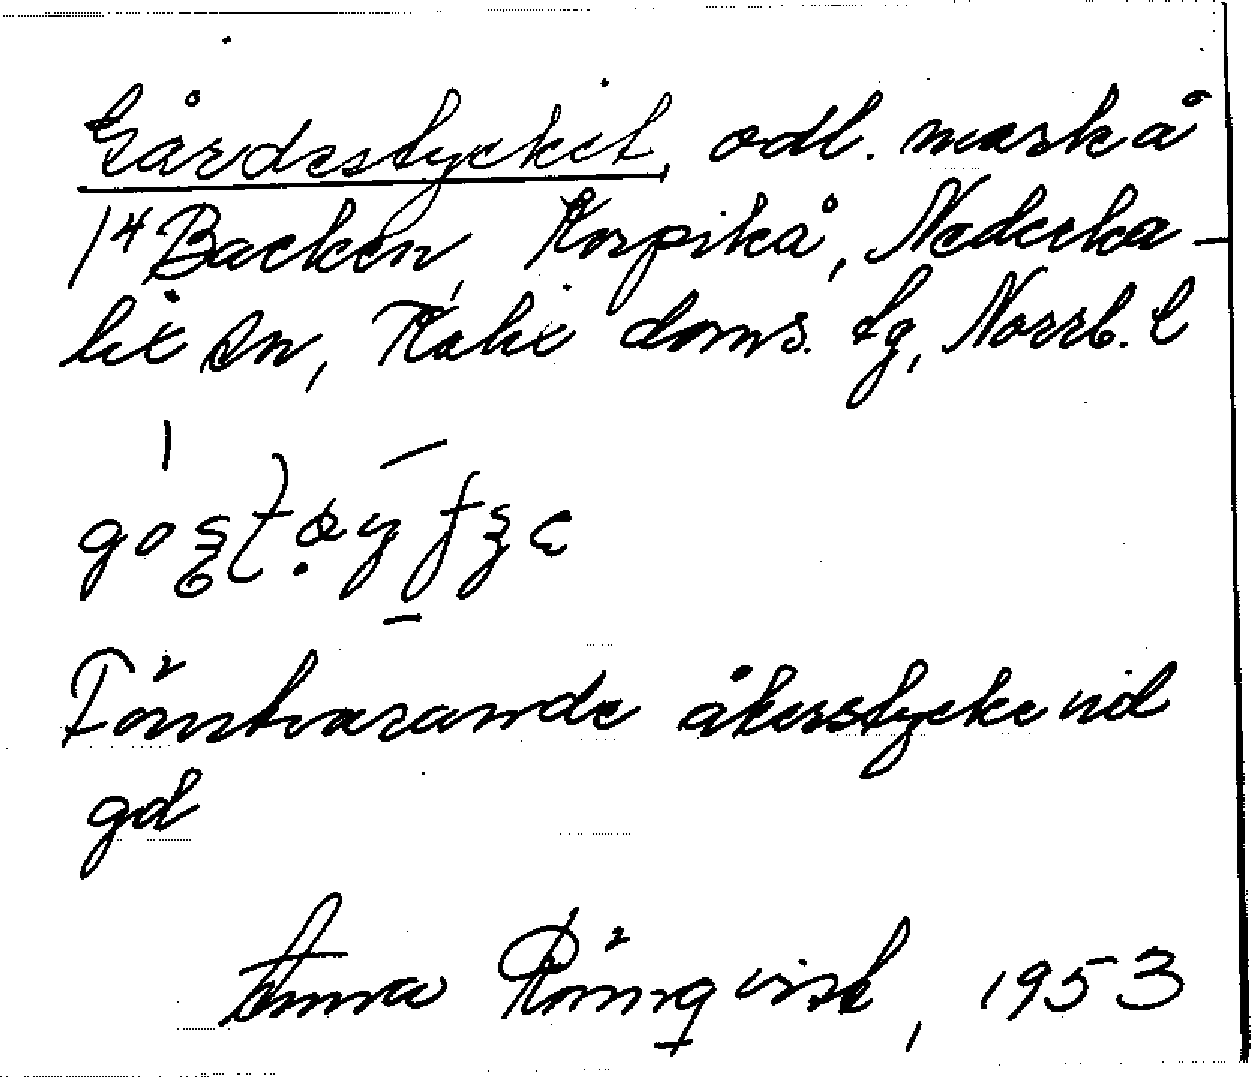 Gårdestycket, odl. mark å
1⁴ Backen, Korpikå, Nederka-
lix sn, Kalix doms. tg, Norrb. l
Förutvarande åkerstycke vid
gd
Anna Rönnqvist, 1953